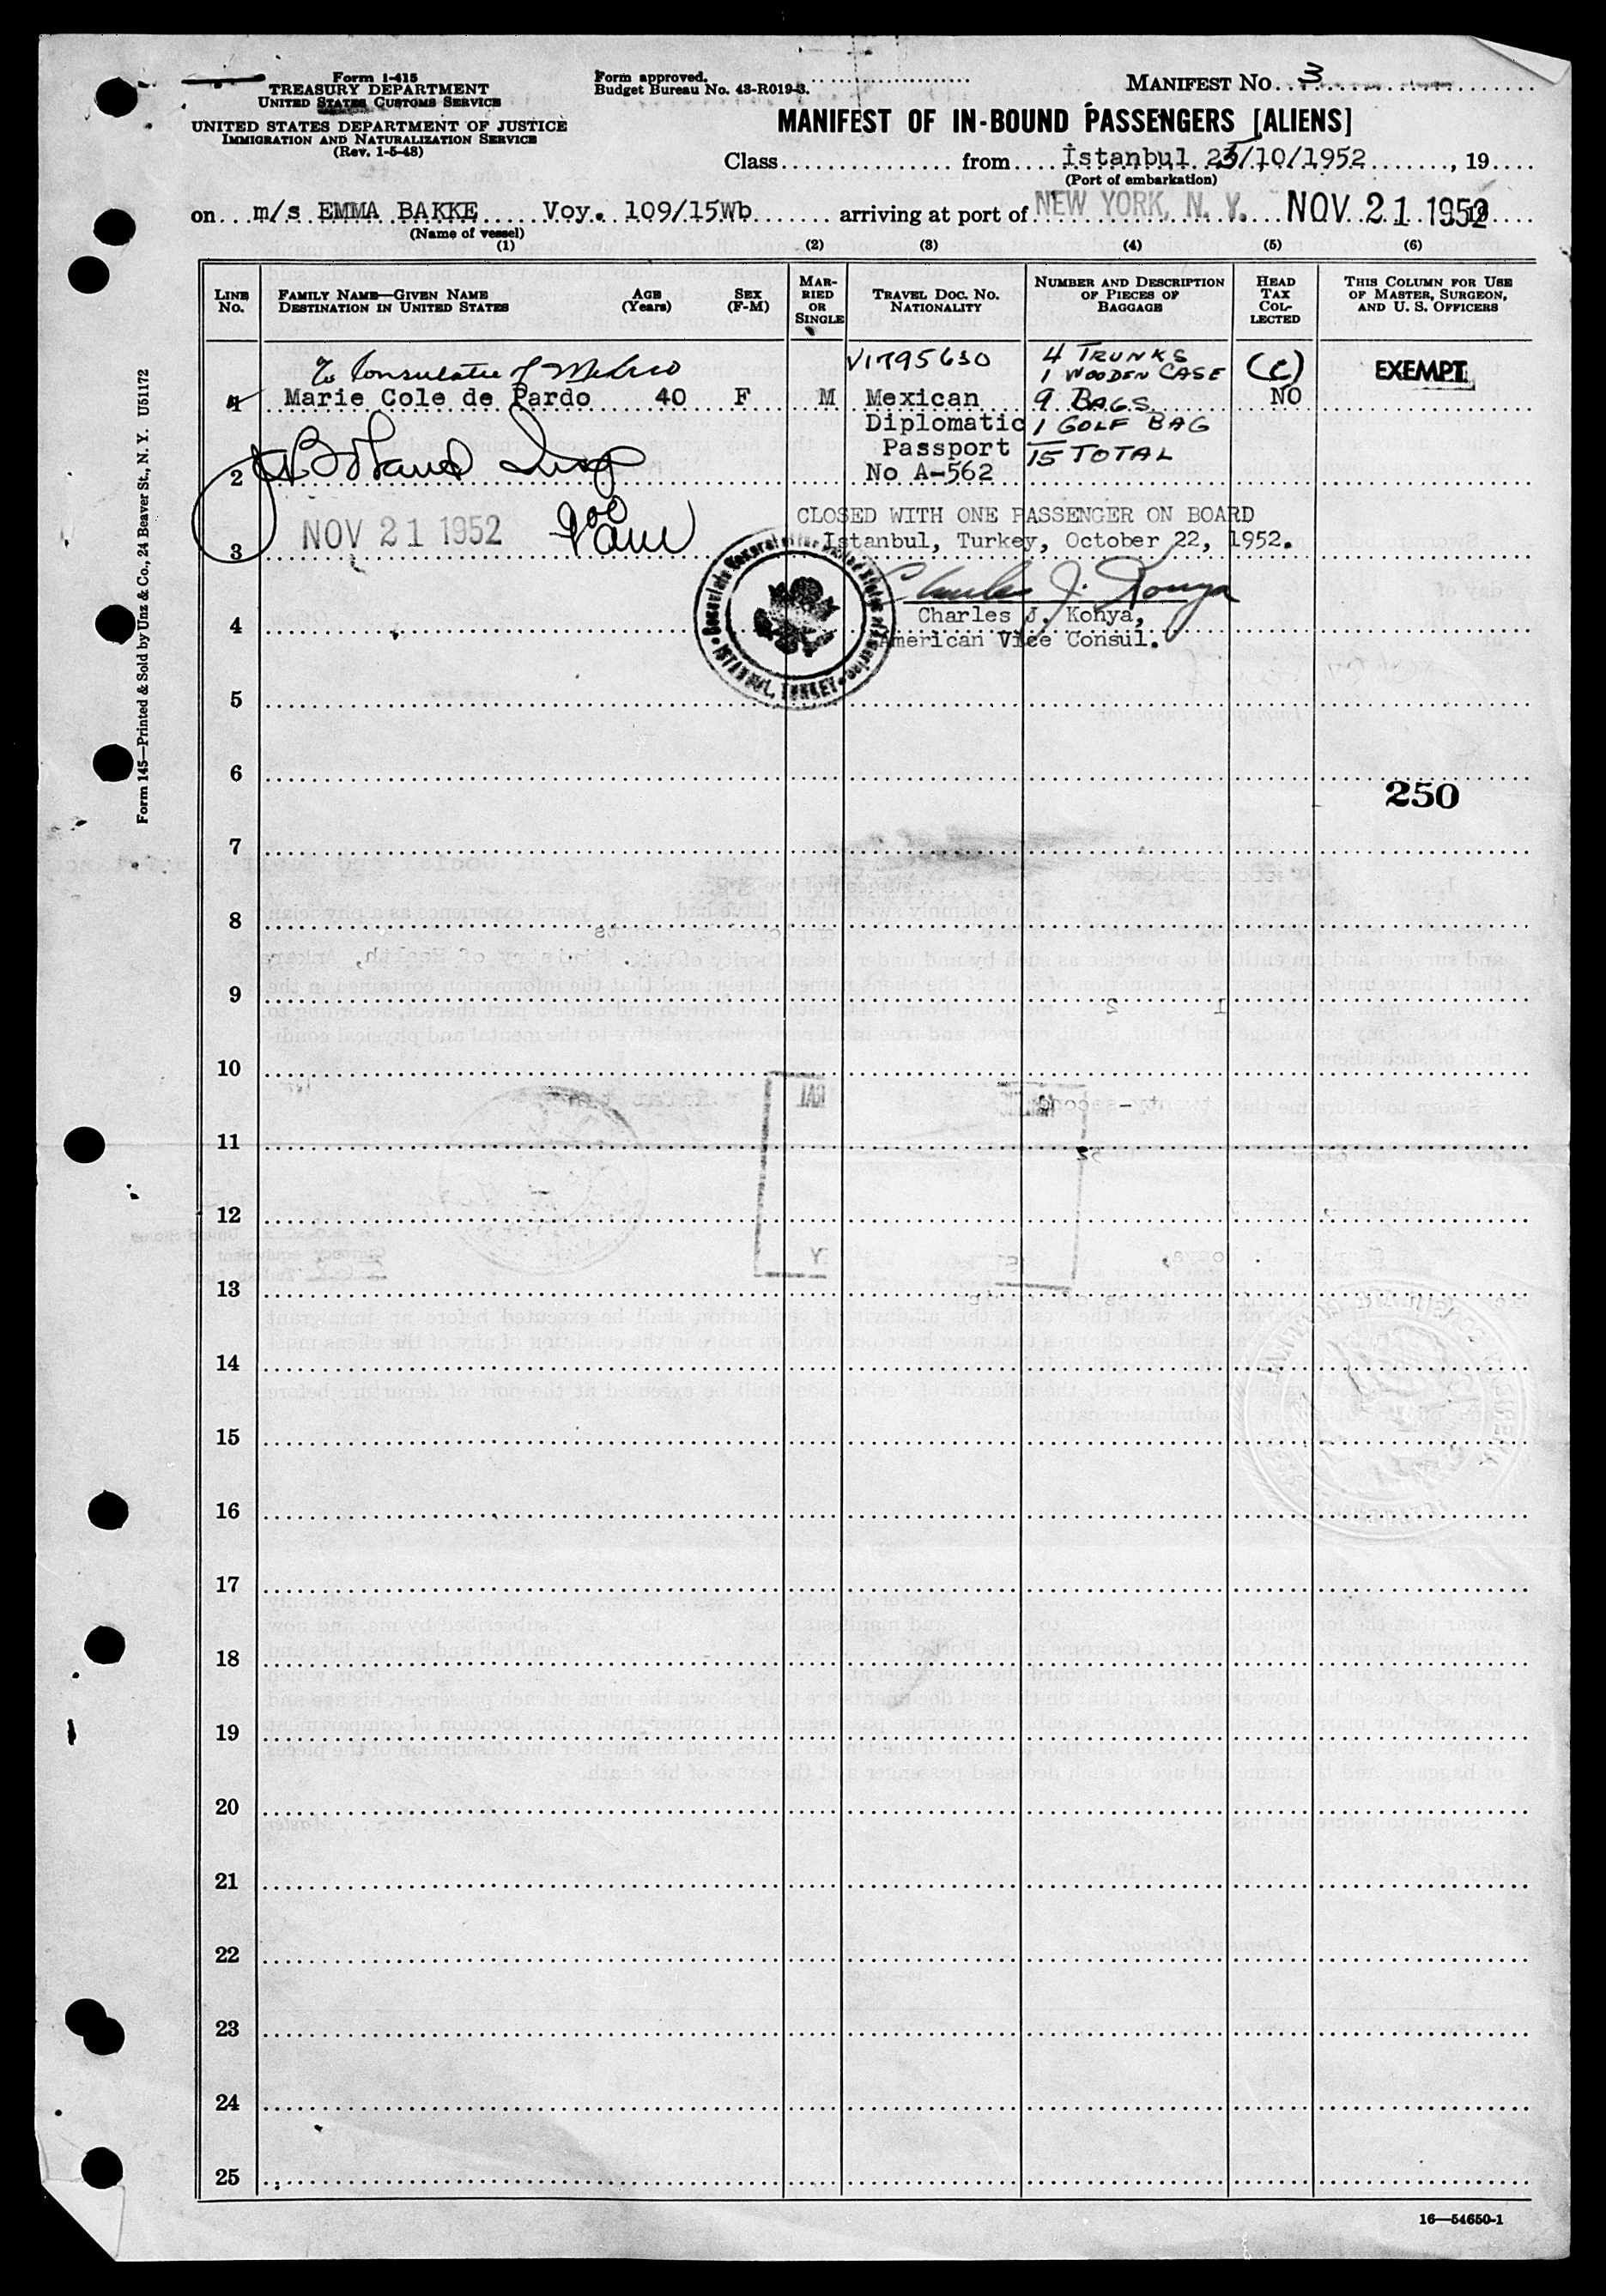 Form I-415
TREASURY DEPARTMENT
UNITED STATES CUSTOMS SERVICE
UNITED STATES DEPARTMENT OF JUSTICE
IMMIGRATION AND NATURALIZATION SERVICE
(Rev. 1-5-48)
Form approved.
Budget Bureau No. 43-R019-3.
MANIFEST NO. 3
MANIFEST OF IN-BOUND PASSENGERS [ALIENS]
Class from İstanbul 25/10/1952, 19
(Port of embarkation)
on m/s EMMA BAKKE Voy. 109/15Wb arriving at port of NEW YORK, N. Y. NOV 21 1952, 19
(Name of vessel)
(1) (2) (3) (4) (5) (6)
LINE NO.
FAMILY NAME—GIVEN NAME
DESTINATION IN UNITED STATES
AGE (Years)
SEX (F-M)
MARRIED OR SINGLE
TRAVEL DOC. NO.
NATIONALITY
NUMBER AND DESCRIPTION OF PIECES OF BAGGAGE
HEAD TAX COLLECTED
THIS COLUMN FOR USE OF MASTER, SURGEON, AND U. S. OFFICERS
To Consulate of Mexico V1795630 4 TRUNKS (C) EXEMPT
1 WOODEN CASE
1 Marie Cole de Pardo 40 F M Mexican 9 BAGS NO
Diplomatic 1 GOLF BAG
Passport 15 TOTAL
2 No A-562
CLOSED WITH ONE PASSENGER ON BOARD
NOV 21 1952
3 Istanbul, Turkey, October 22, 1952.
Charles J. Konya
Charles J. Konya,
4 American Vice Consul.
Consulate General of the United States of America
ISTANBUL, TURKEY
5
6
250
7
8
9
10
11
12
13
14
15
16
17
18
19
20
21
22
23
24
25
16—54650-1
Form 145—Printed & Sold by Unz & Co., 24 Beaver St., N. Y. U51172